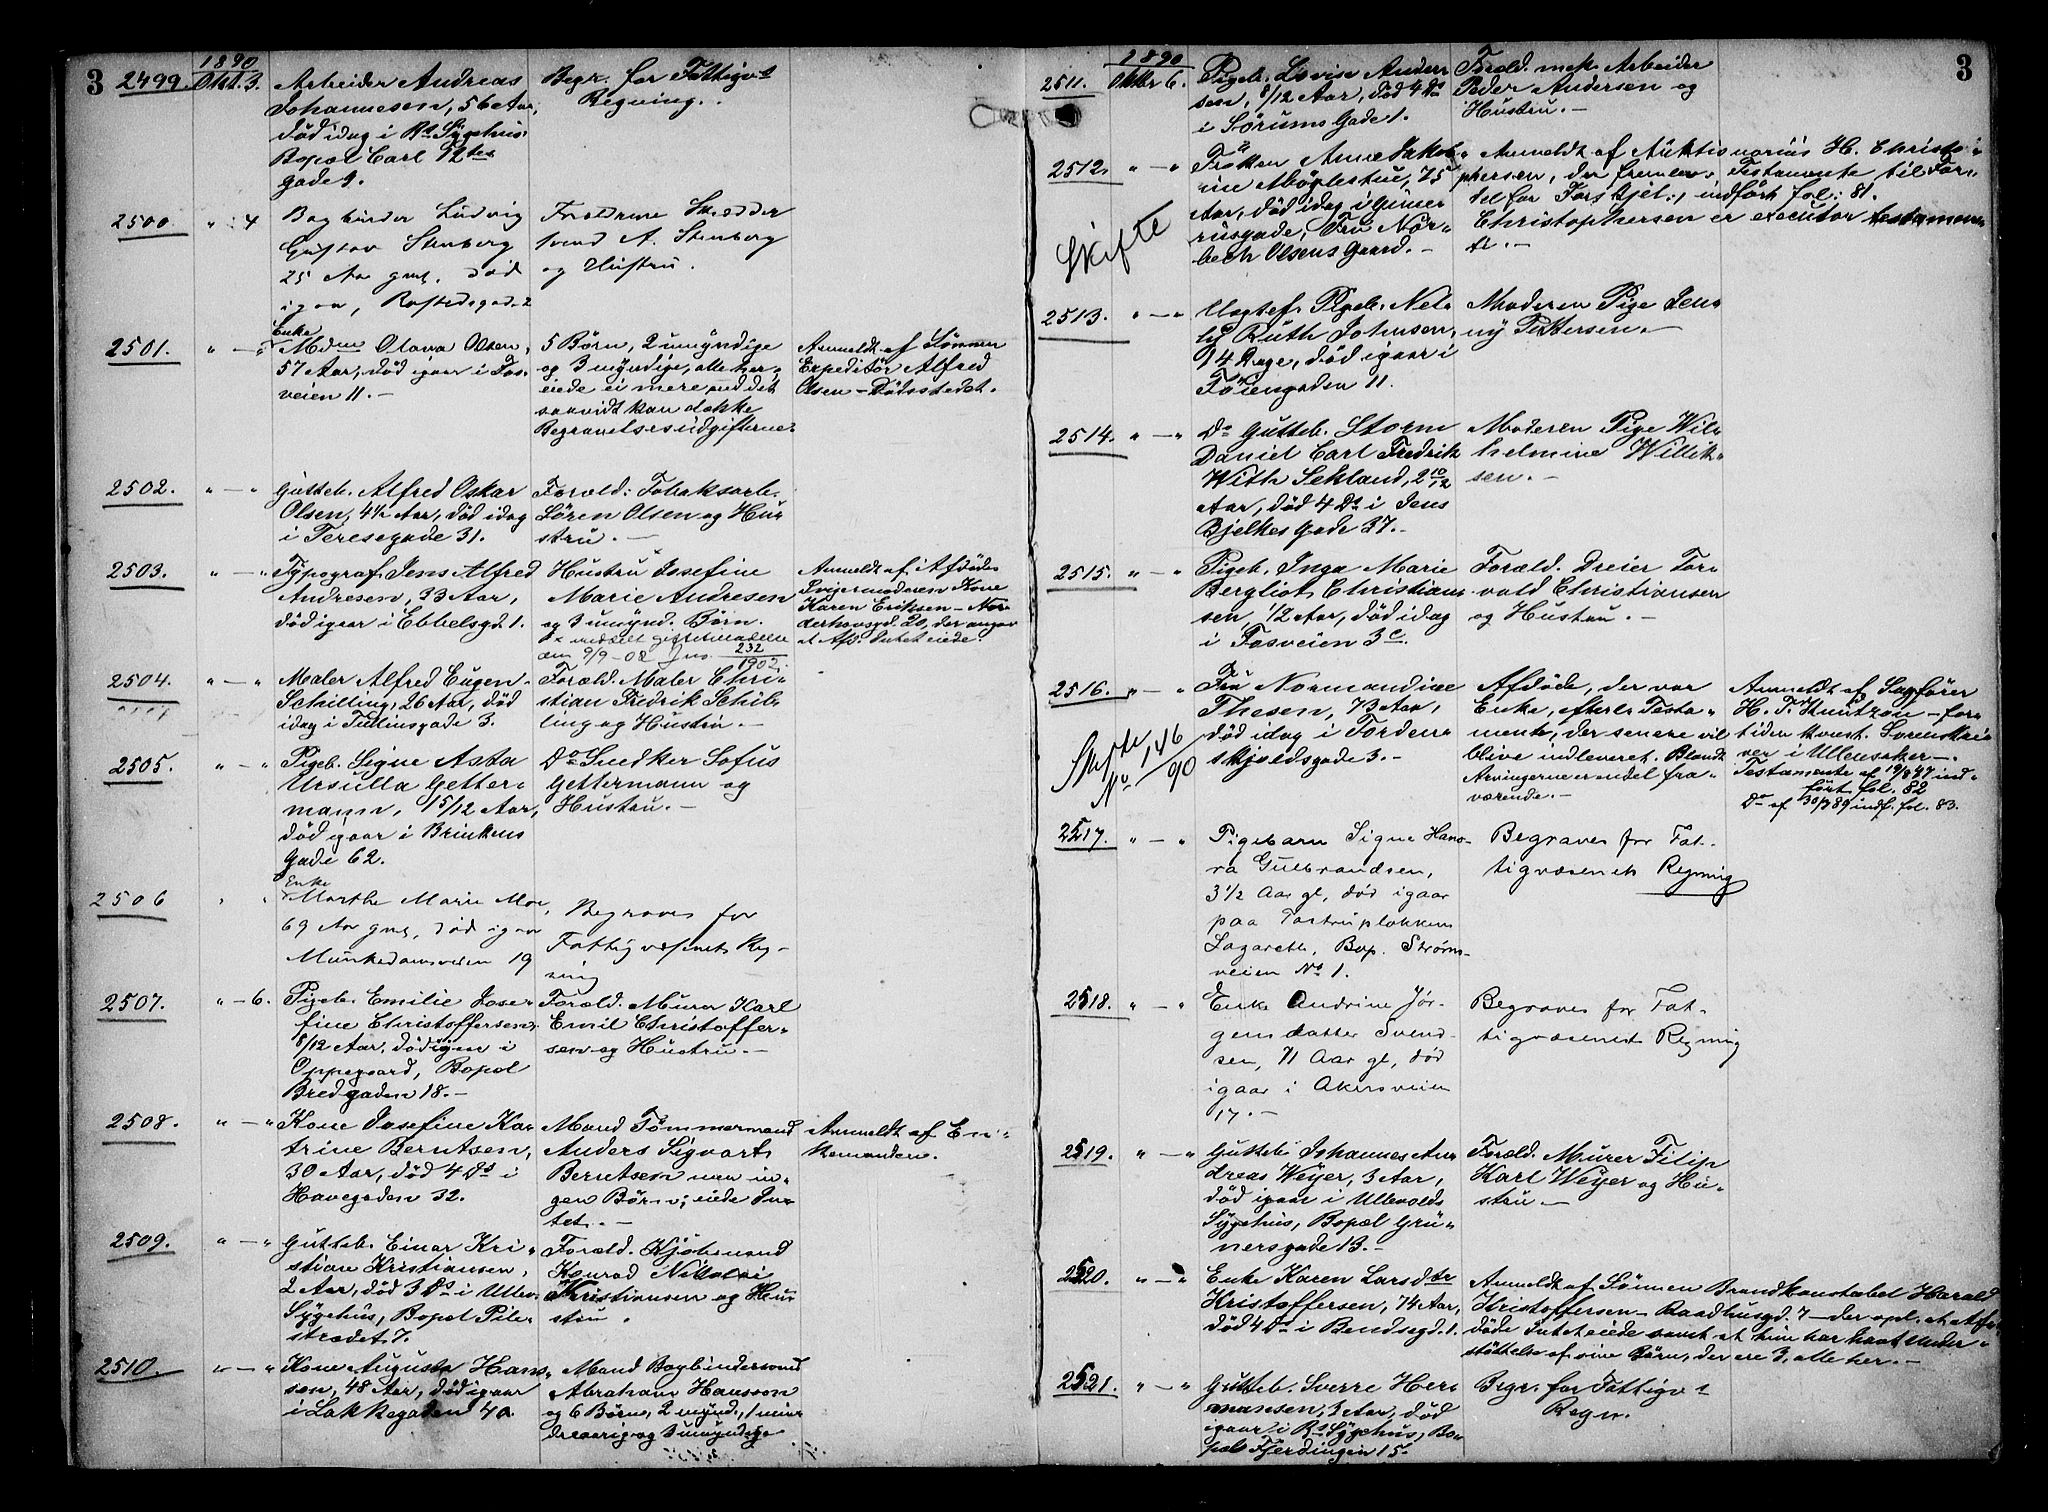 3
1890
2499. Okt. 3. Arbeider Andreas
Johannesen, 56 Aar,
død idag i Rs Sygehus.
Bopæl Carl 12tes
gade 9.
Begr. for Fattigv-t
Regning.
2500 " : 4 Bogbinder Ludvig
Gustav Stenberg
25 Aar gml. død
igaar,
Forældrene Skrædder
Svend A. Stenberg
og Hustru.
2501. " — " Enke
Mdme Olava Olsen,
57 Aar, død igaar i Fos-
veien 11. —
5 Børn, 2 umyndige
og 3 myndige, alle her,
eiede ei mere end det
saavidt kan dække
Begravelsesudgifterne.
Anmeldt af Sønnen
Expeditør Alfred
Olsen — Dødsstedet.
2502. " — " Gutteb. Alfred Oskar
Olsen, 4½ Aar, død idag
i Teresegade 31.
Foræld: Tobaksarb.
Sören Olsen og Hu-
stru. —
2503. " — " Typograf Jens Alfred
Andresen, 33 Aar,
død igaar i Ebbelsgd. 1.
Hustru Josefine
Marie Andresen
og 3 umynd. Børn.
x meddelt
den 9/9-02 Jno. 232/1902.
Anmeldt af Afdødes
Svigermoderen Kone
Karen Eriksen — Nor-
derhovsgd. 20, der angav
at Afd. Intet eiede.
2504. " — " Maler Alfred Eugen
Schilling, 26 Aar, død
idag i Tullinsgade 3.
Foræld. Maler Chri-
stian Fredrik Schil-
ling og Hustru. —
2505. " — " Pigeb. Signe Asta
Ursulla Getter-
mann, 15/12 Aar,
død igaar i Brinkens
Gade 62.
Do Snedker Sofus
Gettermann og
Hustru. —
2506 " " Enke
Marthe Marie Moe,
69 Aar gml, død igaar
Munkedamsveien 19
Begraves for
Fattigvæsnets Reg-
ning
2507. " — 6. Pigeb. Emilie Jose-
fine Christoffersen,
8/12 Aar, død igaar i
Oppegaard, Bopæl
Bredgaden 18. —
Foræld. Murer Karl
Emil Christoffer-
sen og Hustru. —
2508. " — " Kone Josefine Ka-
trine Berntsen,
30 Aar, død 4 Ds i
Havegaden 32.
Mand Tømmermand
Anders Sigvart
Berntsen men in-
gen Børn; eiede In-
tet. —
Anmeldt af En-
kemanden.
2509. " — " Gutteb. Einar Kri-
stian Kristiansen,
2 Aar, død 3 Ds i Ullev.
Sygehus, Bopæl Pile-
strædet 7.
Foræld. Kjöbmand
Konrad Nikolai
Kristiansen og Hu-
stru.
2510. " — " Kone Augusta Hans-
sen, 48 Aar, død igaar
i Lakkegaden 4a.
Mand Bogbindersvend
Abraham Hansson
og 6 Børn, 2 mynd., 1 min-
dreaarig og 3 umyndige
3
1890
2511. Oktbr 6. Pigeb. Lovise Ander-
sen, 8/12 Aar, død 4 Ds
i Sörums Gade 1.
Foræld. meh. Arbeider
Peder Andersen og
Hustru. —
2512. " — " Frøken Anne Jakob-
ine Møglestue, 75
Aar, død idag i Grüner
rusgade, Fru Nor-
bech Olsens Gaard. —
Skifte
Anmeldt af Auktionarius H. Christo-
phersen, der fremlev. Testamente til For-
del for indført fol: 81.
Christophersen er executor testamen-
ti. —
2513. " — " Uægtef. Pigeb. Nel-
ly Ruth Johnsen,
14 Dage, død igaar i
Töiengaden 11.
Moderen Pige Jen-
ny Pettersen. —
2514. " — " Do Gutteb. Storm
Daniel Carl Fredrik
With Sekland, 2 10/12
Aar, død 4 Ds i Jens
Bjelkes Gade 37. —
Moderen Pige Wil-
helmine Willik-
sen. —
2515. " — " Pigeb. Inga Marie
Bergliot Christian-
sen, 1/2 Aar, død idag
i Fosveien 3c.
Foræld. Dreier Tor-
vald Christiansen
og Hustru. —
2516. " — " Fru Normandine
Thesen, 73 Aar,
død idag i Torden-
skjoldsgade 3. —
Skifte
No 146/90
Afdøde, der var
Enke, efterl. Testa-
mente, der senere vil
blive indleveret. Blandt
Arvingerne er endel fra-
værende. —
Anmeldt af Sagfører
H. T. Huntzon — for-
tiden konst. Sorenskri-
ver i Ullensaker —.
Testamente af 19/8 47 ind-
ført fol. 82
Do af 30/7 89 indf. fol. 83.
2517. " — " Pigebarn Signe Hano-
ra Gulbrandsen,
3 1/2 Aar gl, død igaar
paa Tostrupløkkens
Lazareth, Bop. Strøms-
veien No 1.
Begraves for Fat-
tigvæsenets Regning
2518. " — " Enke Andrine Jør-
gensdatter Svend-
sen, 71 Aar gl, død
igaar i Akersveien
17. —
Begraves for Fat-
tigvæsenets Regning
2519. " — " Gutteb. Johannes An-
dreas Weyer, 3 Aar,
død igaar i Ullevolds
Sygehus, Bopæl Grü-
nersgade 13. —
Foræld. Murer Filip
Karl Weyer og Hu-
stru. —
2520. " — " Enke Karen Larsdtr
Kristoffersen, 74 Aar,
død 4 Ds i Bendsegd. 1.
Anmeldt af Sønnen Brandkonstabel Harald
Kristoffersen — Raadhusgd. 7 — der opl. at Afd-
døde Intet eiede samt at hun har havt Under-
støttelse af sine Børn, der ere 3, alle her. —
2521. " — " Gutteb. Sverre Her-
mansen, 3 Aar, død
igaar i Rs Sygehus, Bo-
pæl Fjerdingen 15.
Begr. for Fattigv-t
Regn.